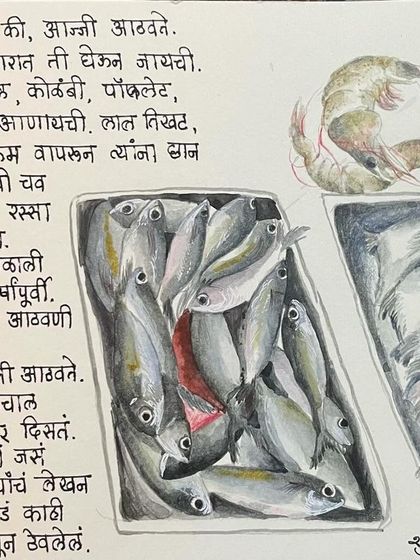 की, आज्जी आठवते.
ारात ती घेऊन जायची.
कोळंबी, पॉपलेट,
आणायची. लाल तिखट,
वापरून त्यांना छान
ची चव
रस्सा
ळाली
र्षांपूर्वी.
आठवणी
ी आठवते.
चाल
दिसतं.
जसं
यांचं लेखन
डं काही
ून ठेवलेलं.